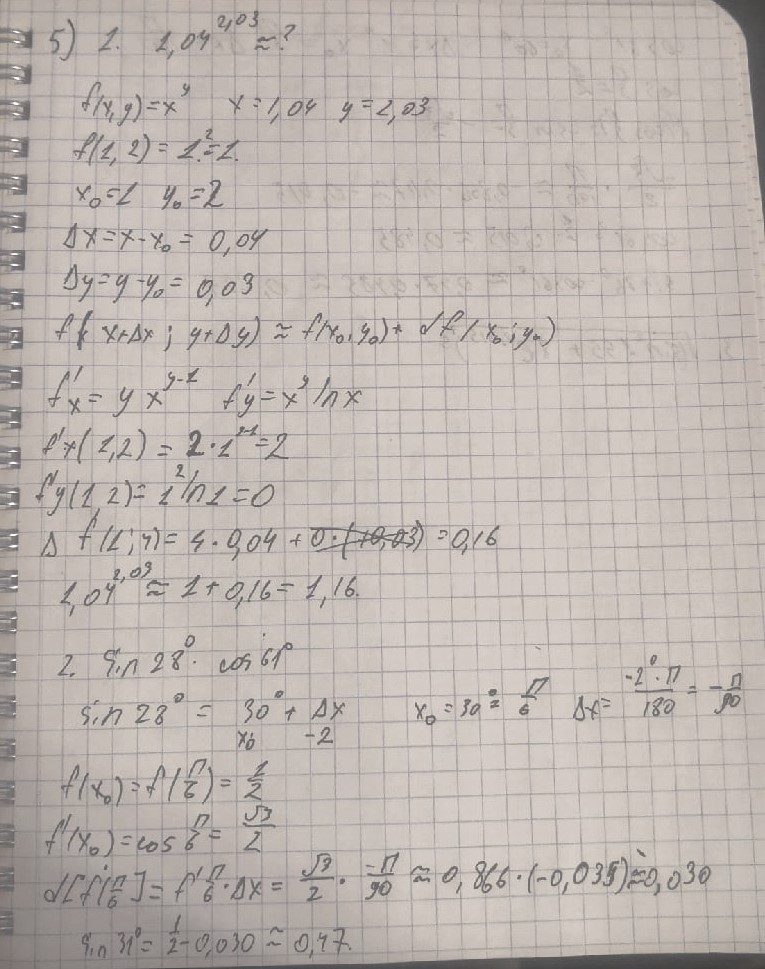 5) 1. 1,04^2,03 ≈ ?
f(x,y) = x^y x = 1,04 y = 2,03
f(1, 2) = 1.^2 = 1.
x₀ = 1 y₀ = 2
Δx = x - x₀ = 0,04
Δy = y - y₀ = 0,03
f( x+Δx ; y+Δy) ≈ f(x₀; y₀) + df(x₀; y₀)
f'x = y x^y-1 f'y = x^y ln x
f'x(1,2) = 2·1^2-1 = 2
f'y(1,2) = 1^2 ln 1 = 0
Δ f(1; 4) = 4·0,04 + 0·(+0,03) = 0,16
1,04^2,03 ≈ 1 + 0,16 = 1,16.
2. Sin 28° · cos 61°
Sin 28° = 30° + Δx x₀ = 30° = π/6 Δx = -2°·π/180 = -π/90
x₀ -2
f(x₀) = f(π/6) = 1/2
f'(x₀) = cos π/6 = √3/2
d[f(π/6] = f' π/6 · Δx = √3/2 · -π/90 ≈ 0,866·(-0,035) ≈ 0,030
Sin 31° = 1/2 - 0,030 ≈ 0,47.